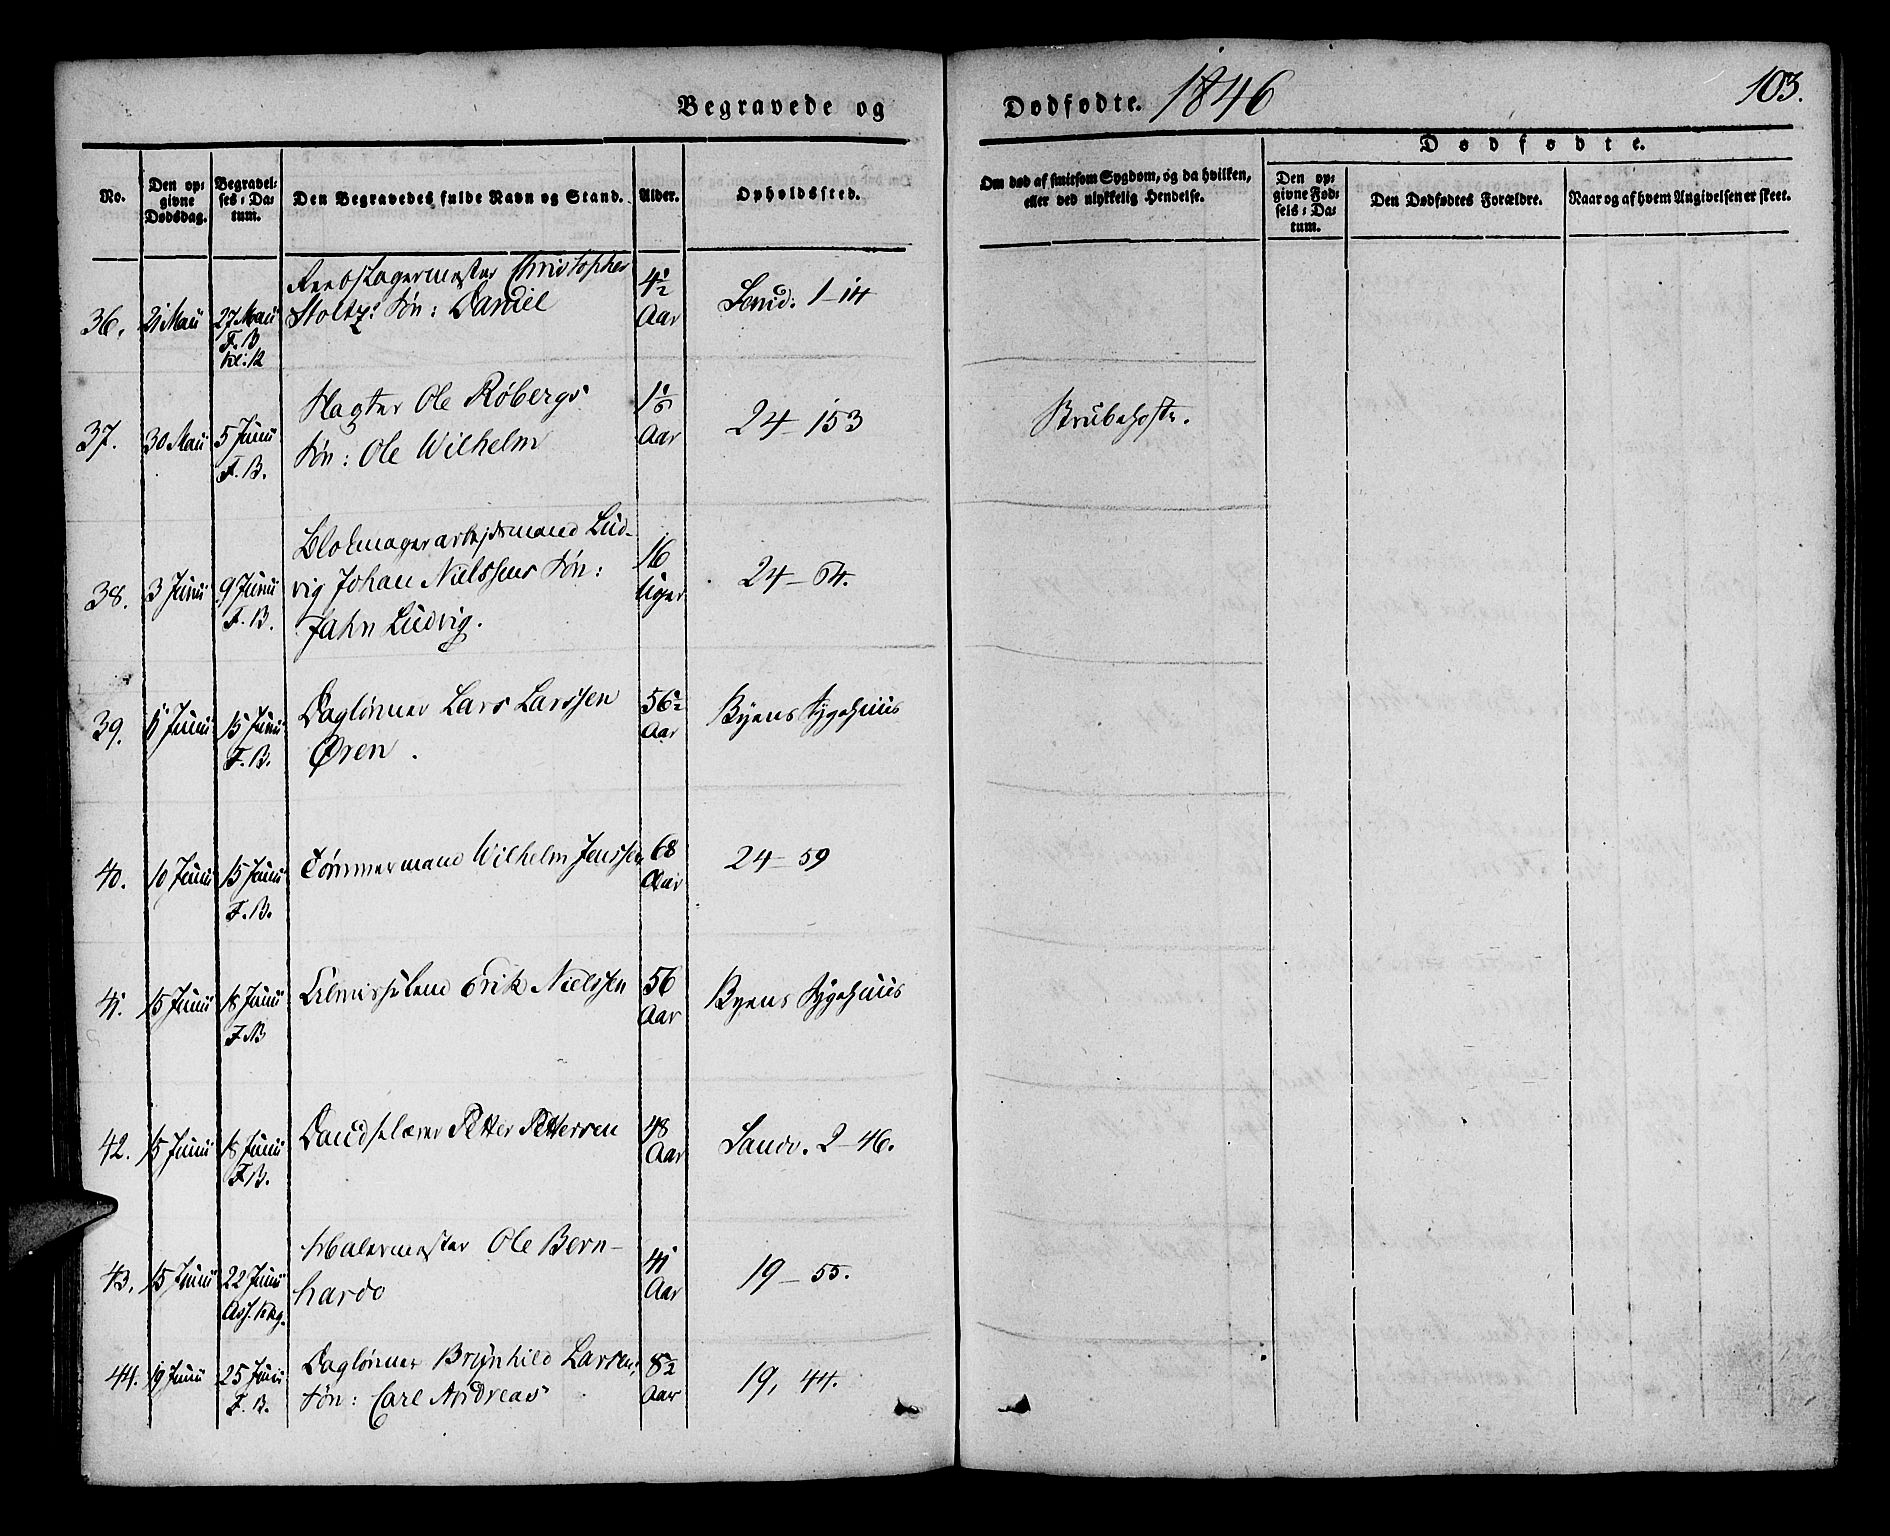 Begravede og Dødfødte. 1846
103.
Dødfødte.
No.
Den op-
givne
Dødsdag.
Begravel-
ses-Da-
tum.
Den Begravedes fulde Navn og Stand.
Alder.
Opholdssted.
Om død af smitsom Sygdom, og da hvilken,
eller ved ulykkelig Hendelse.
Den op-
givne Fød-
sels-Da-
tum.
Den Dødfødtes Forældre.
Naar og af hvem Angivelsen er skeet.
36. 21 Maii 27 Maii
F. B
Kl: 12
Reebslagermester Christopher
Stoltz's Søn: Daniel
4½
Aar
Sandv. 1-14
37. 30 Maii 5 Junii
F. B.
Slagter Ole Røbergs
Søn: Ole Wilhelm
Aar
24-153
Strubehoste.
38. 3 Junii 9 Junii
F. B.
Blokmagerarbejdsmand Lud-
vig Johan Nielssens Søn:
Jahn Ludvig.
16
Uger
24-64.
39. Junii 15 Junii
F. B.
Daglønner Lars Larssen
Øren.
56½
Aar
Byens Sygehuus
40. 10 Junii 15 Junii
F. B.
Tømmermand Wilhelm Jenssen
68
Aar
24-59
41. 15 Junii 18 Junii
F. B
Almisselem Erik Nielssen
56
Aar
Byens Sygehuus
42. 15 Junii 18 Junii
F. B.
Dandselærer Petter Pettersen
48
Aar
Sandv. 2-46.
43. 15 Junii 22 Junii
Ass. Kkg.
Malermester Ole Bern-
hardo
41
Aar
19-55.
44. 19 Junii 25 Junii
F. B.
Daglønner Brynhild Larsens
Søn: Carl Andreas
8½
Aar
19, 44.